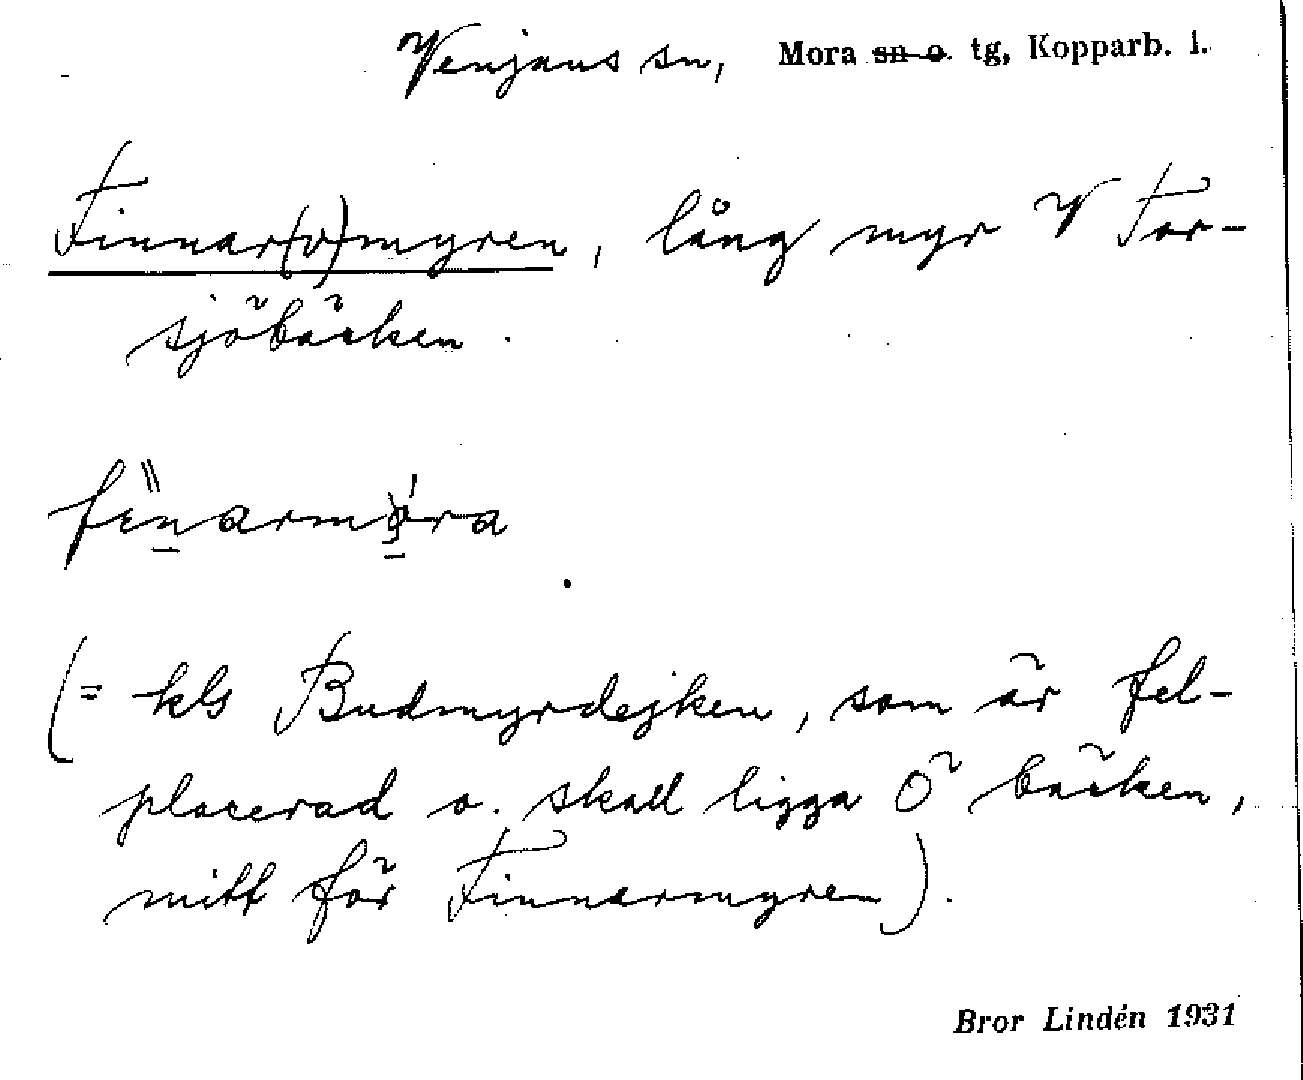 Venjans sn, Mora sn o. tg, Kopparb. l.
Finnar(v)myren, lång myr V Tor-
sjöbäcken.
(= kls Budmyrdejken, som är fel-
placerad o. skall ligga Ö bäcken,
mitt för Finnarmyren).
Bror Lindén 1931